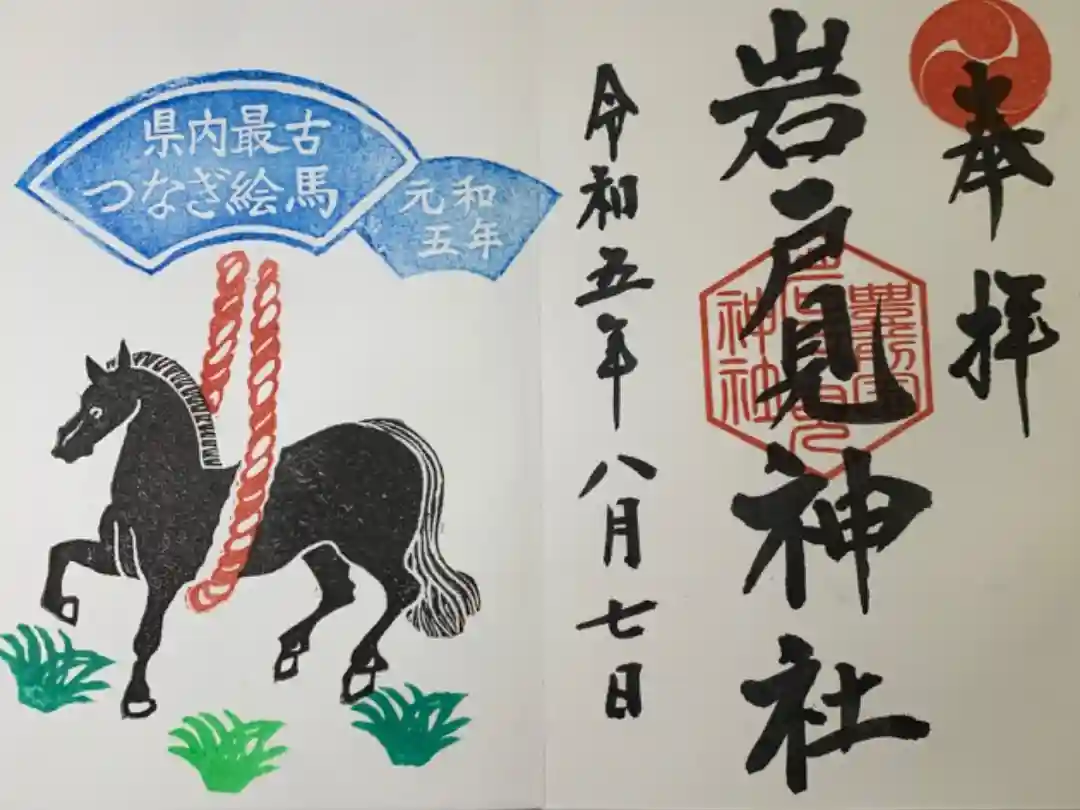 奉拝
岩戸見神社
豊前国
岩戸見
神社
令和五年八月七日
県内最古
つなぎ絵馬
元和
五年